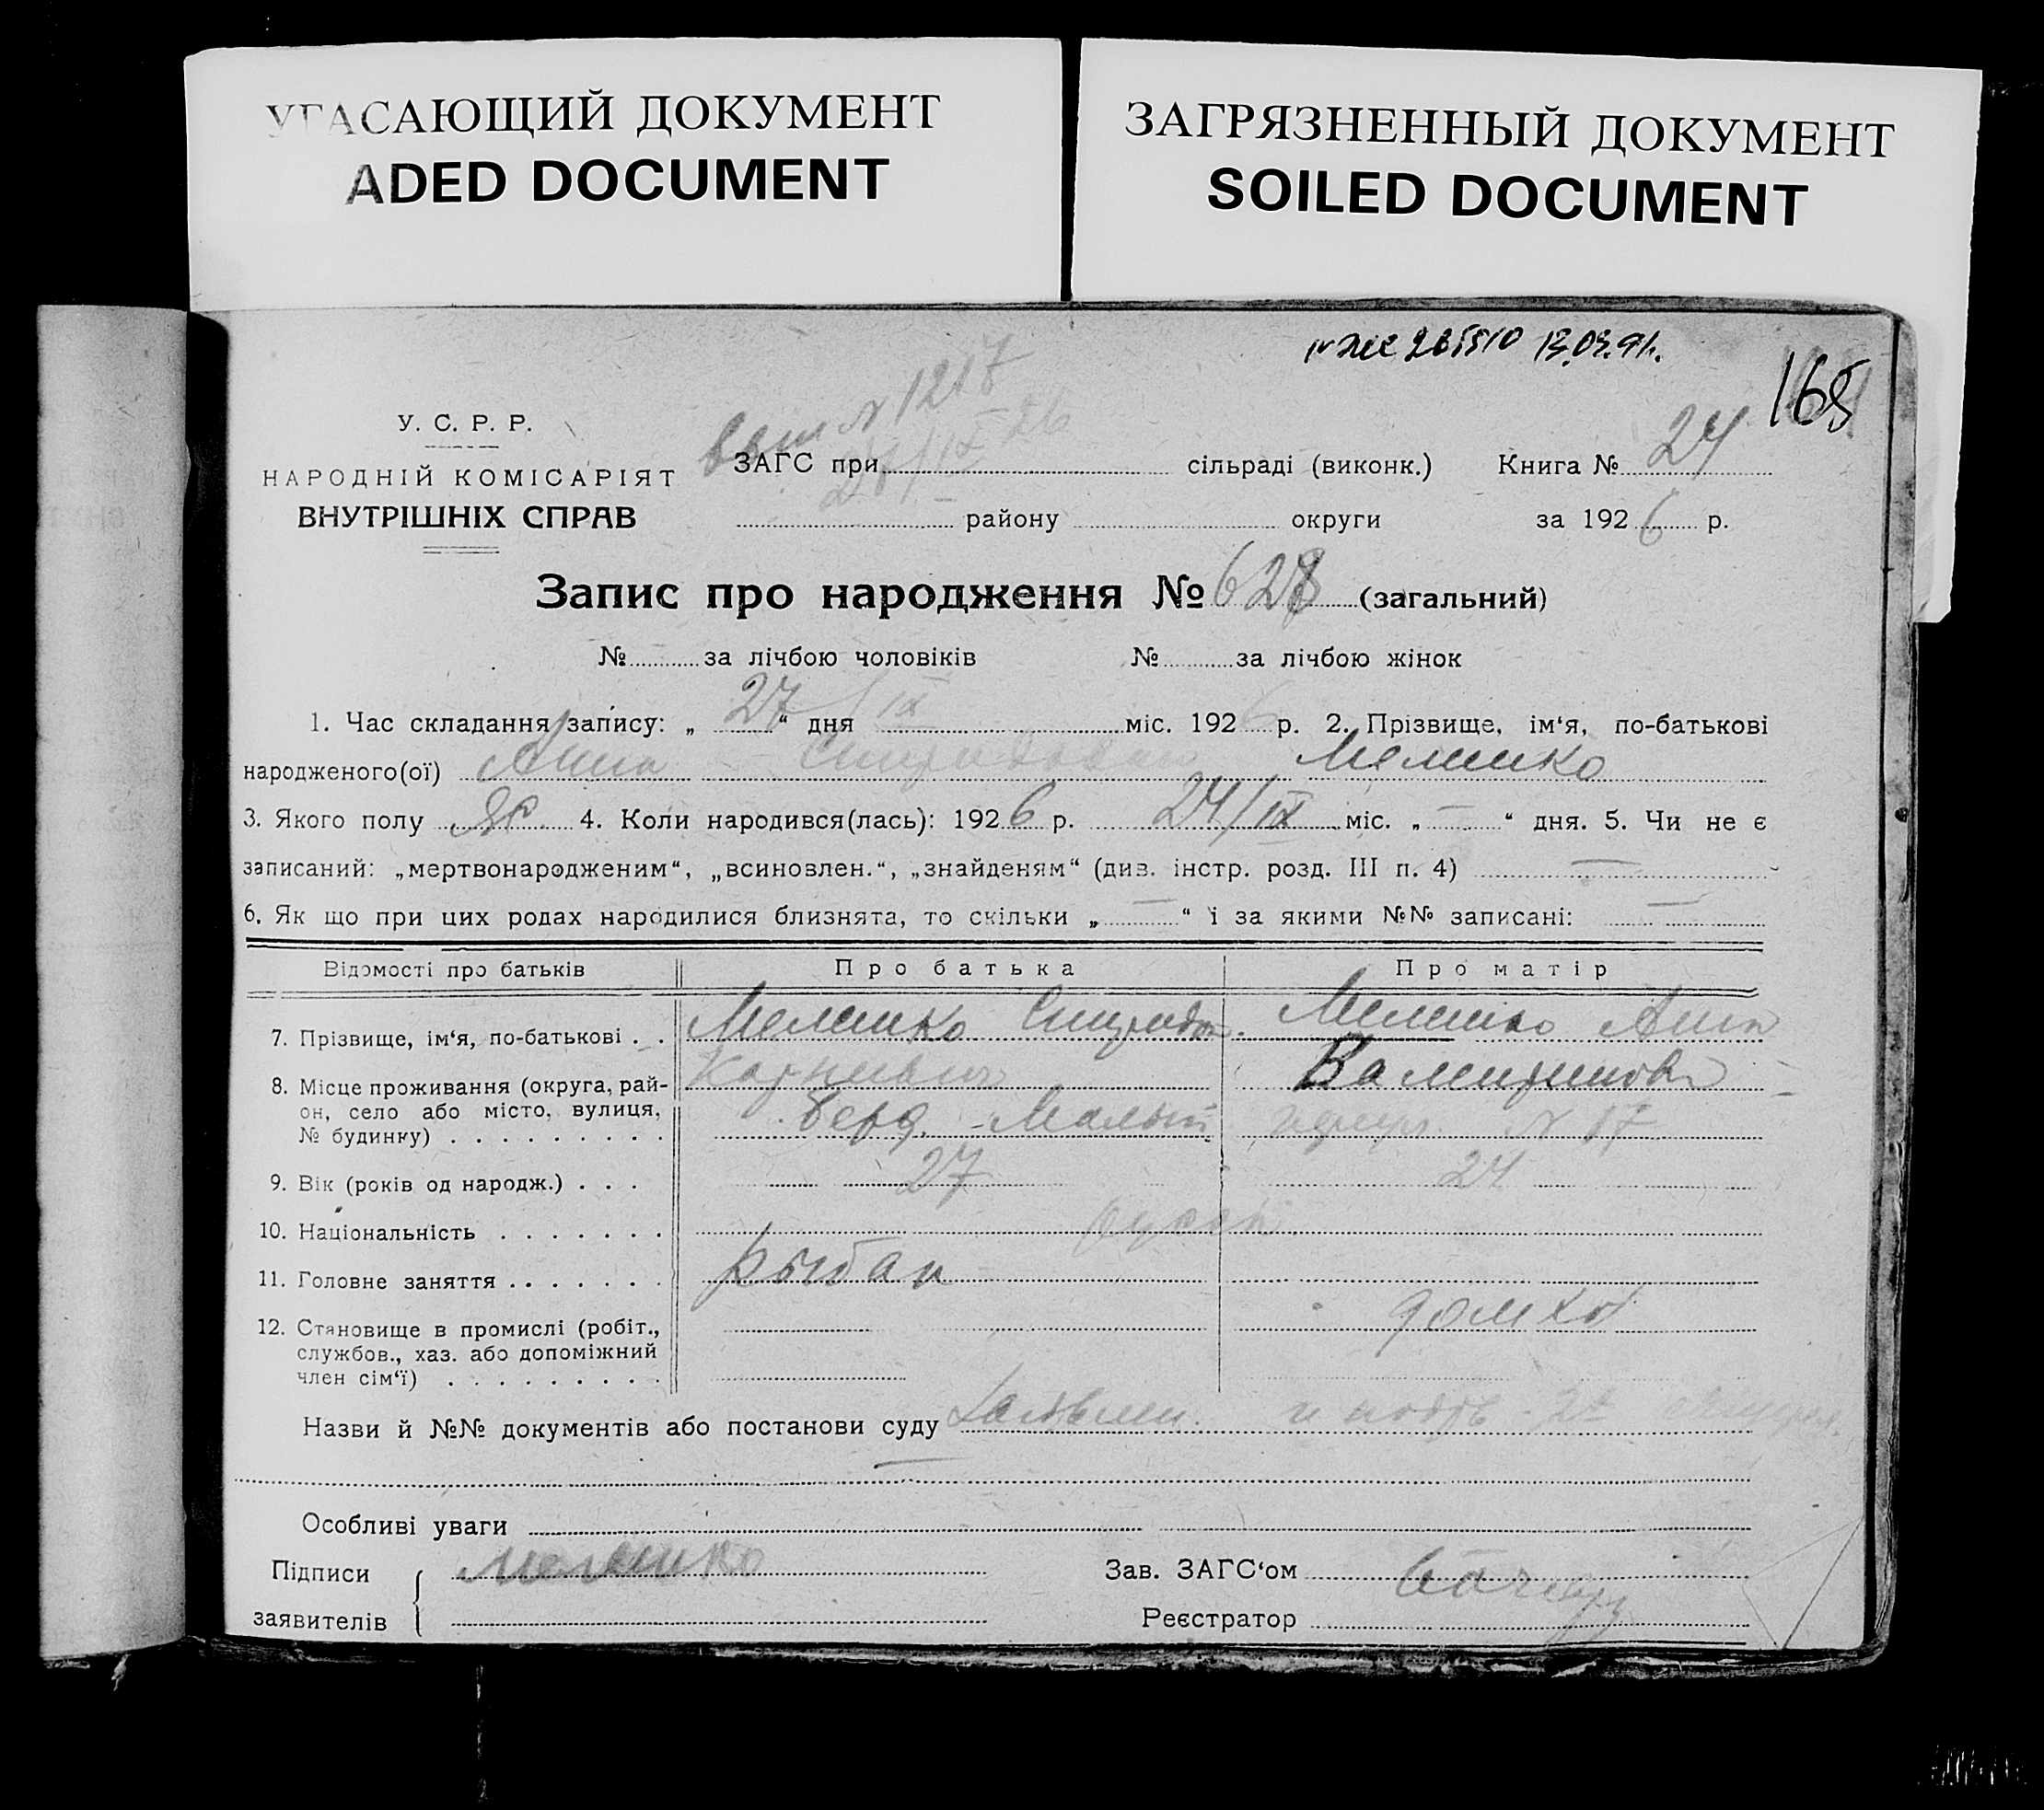 УГАСАЮЩИЙ ДОКУМЕНТ
ADED DOCUMENT
ЗАГРЯЗНЕННЫЙ ДОКУМЕНТ
SOILED DOCUMENT
13.03.91.
165
№ 1217
27/IX 26
У. С. Р. Р.
НАРОДНІЙ КОМІСАРІЯТ
ВНУТРІШНІХ СПРАВ
ЗАГС при сільраді (виконк.) Книга № 24
району округи за 1926 р.
Запис про народження № 628 (загальний)
№ за лічбою чоловіків № за лічбою жінок
1. Час складання запису: „27“ дня IX міс. 1926 р. 2. Прізвище, ім‘я, по-батькові
народженого(ої) Анна Мелешко
3. Якого полу Ж 4. Коли народився(лась): 1926 р. 24/IX міс. „—“ дня. 5. Чи не є
записаний: „мертвонародженим“, „всиновлен.“, „знайденям“ (див. інстр. розд. III п. 4) —
6. Як що при цих родах народилися близнята, то скільки „—“ і за якими №№ записані: —
Відомості про батьків Про батька Про матір
7. Прізвище, ім‘я, по-батькові . . Мелешко Спиридон Мелешко Анна
8. Місце проживання (округа, рай-
он, село або місто, вулиця,
№ будинку) . . . . . . . . . Берд. № 17
9. Вік (років од народж.) . . . 27 24
10. Національність . . . . . . .
11. Головне заняття . . . . . . . рыбак
12. Становище в промислі (робіт.,
службов., хаз. або допоміжний
член сім‘ї) . . . . . . . . . домхоз
Назви й №№ документів або постанови суду
Особливі уваги
Підписи
заявителів Мелешко
Зав. ЗАГС‘ом
Реєстратор